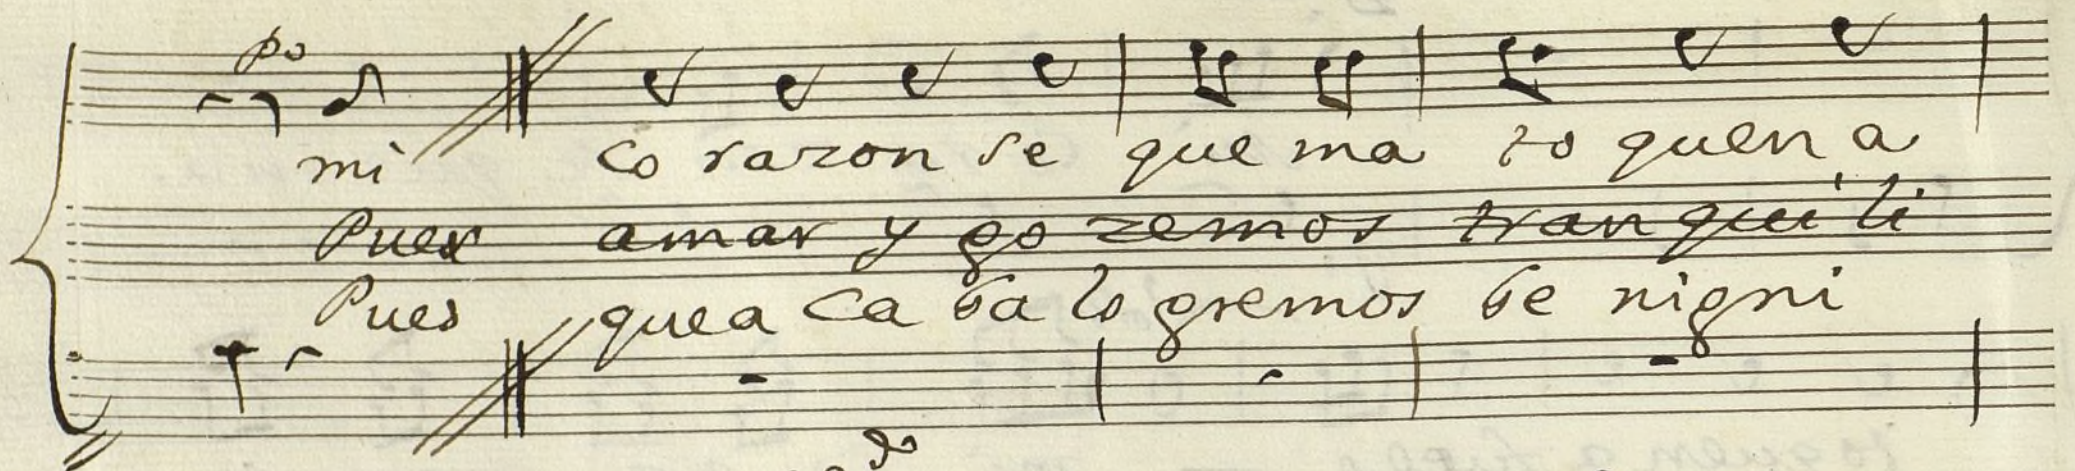 po
mi co razon se que ma to quen a
Pues amar y go zemos tran qui li
Pues quea ca ba lo gremos be nigni